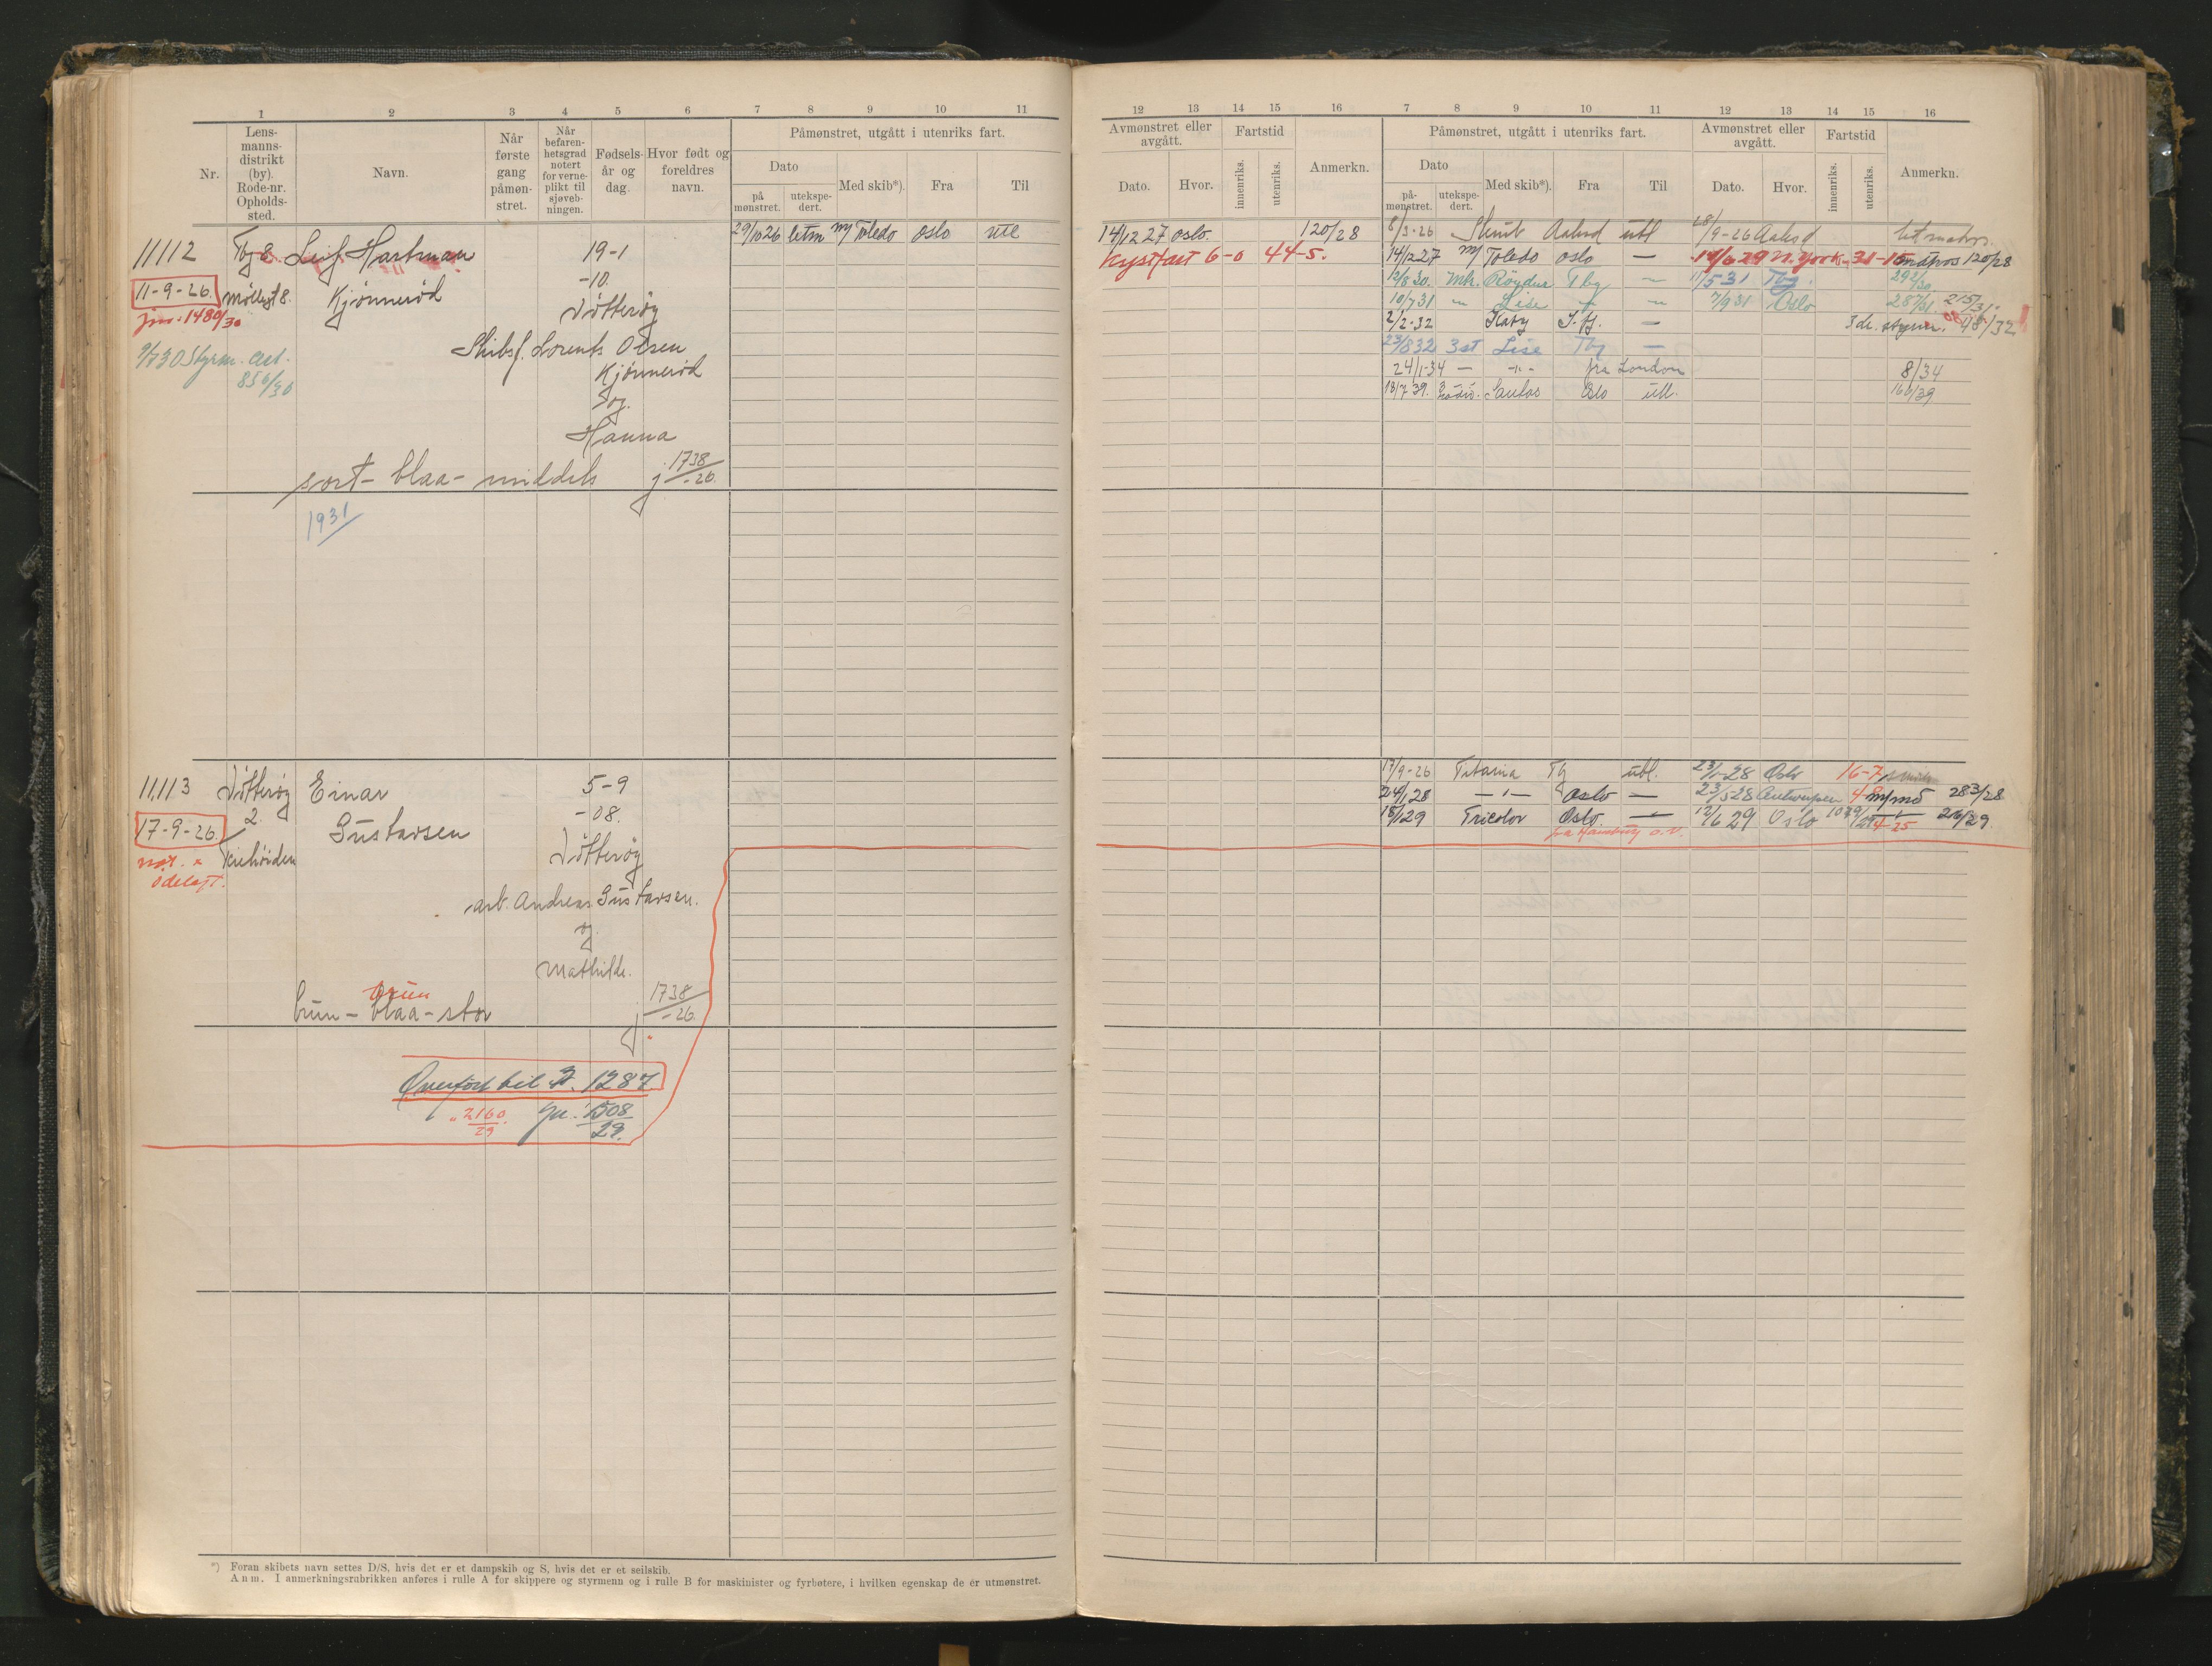 1 2 3 4 5 6 7 8 9 10 11
Nr.
Lens-
manns-
distrikt
(by).
Rode-nr.
Opholds-
sted.
Navn.
Når
første
gang
påmøn-
stret.
Når
befaren-
hetsgrad
notert
for verne-
plikt til
sjøveb-
ningen.
Fødsels-
år og
dag.
Hvor født og
foreldres
navn.
Påmønstret, utgått i utenriks fart.
Dato
på
mønstret.
utekspe-
dert.
Med skib*).
Fra
Til
29/10 26 letm M/ Toledo Oslo utl
11112 Tbg 8. Leif Hartman 19-1
11-9-26. Møllegt 8. Kjønnerød -10.
jnr. 1480/30 Nøtterøy
9/7 30 Styrm. cert. Skibsf. Lorents Olsen
856/30 Kjønnerød
og
Hanna
sort - blaa - middels j 1738/-26.
1931
11113 Nøtterøy Einar 5-9
17-9-26. 2. Gustavsen -08.
Nøtterøy
ødelagt.
arb. Andreas Gustavsen.
og
Mathilde.
brun
brun - blaa - stor j 1738/-26.
Overført til A. 1287
" 2160/29 jn. 1508/29.
*) Foran skibets navn settes D/S, hvis det er et dampskib og S, hvis det er et seilskib.
Anm. I anmerkningsrubrikken anføres i rulle A for skippere og styrmenn og i rulle B for maskinister og fyrbøtere, i hvilken egenskap de er utmønstret.
12 13 14 15 16 7 8 9 10 11 12 13 14 15 16
Avmønstret eller
avgått.
Dato.
Hvor.
Fartstid
innenriks.
utenriks.
Anmerkn.
Påmønstret, utgått i utenriks fart.
Dato
på-
mønstret.
utekspe-
dert.
Med skib*).
Fra
Til
Avmønstret eller
avgått.
Dato.
Hvor.
Fartstid
innenriks.
utenriks.
Anmerkn.
14/12 27 Oslo. 120/28
Kystfart 6-0 44-5.
8/3-26 Aalesd utl 28/9-26 Aalesd
14/12 27 M/ Toledo Oslo — 14/6 29 N. York 31-15 matros 120/28
12/8 30. Mtr. Röyder Tbg — 11/5-31 Tbg. 292/30
10/7 31 — Lise — — 7/9 31 Oslo 287/31. 215/31.
2/2-32 Katy — 3de styrm. 48/32
23/8 32 3st Lise Tbg —
24/1-34 — -"- fra London 8/34
18/7 39. Santos Oslo utl. 166/39
17/9-26 Titania Tbg utl. 23/1-28 Oslo 16-7
24/1 28 — " — Oslo — 23/5 28 Antwerpen 4-8 m/md 283/28
18/1 29 Tricolor Oslo. — 12/6 29 Oslo 4-25 26/29
fra Hamburg o.v.